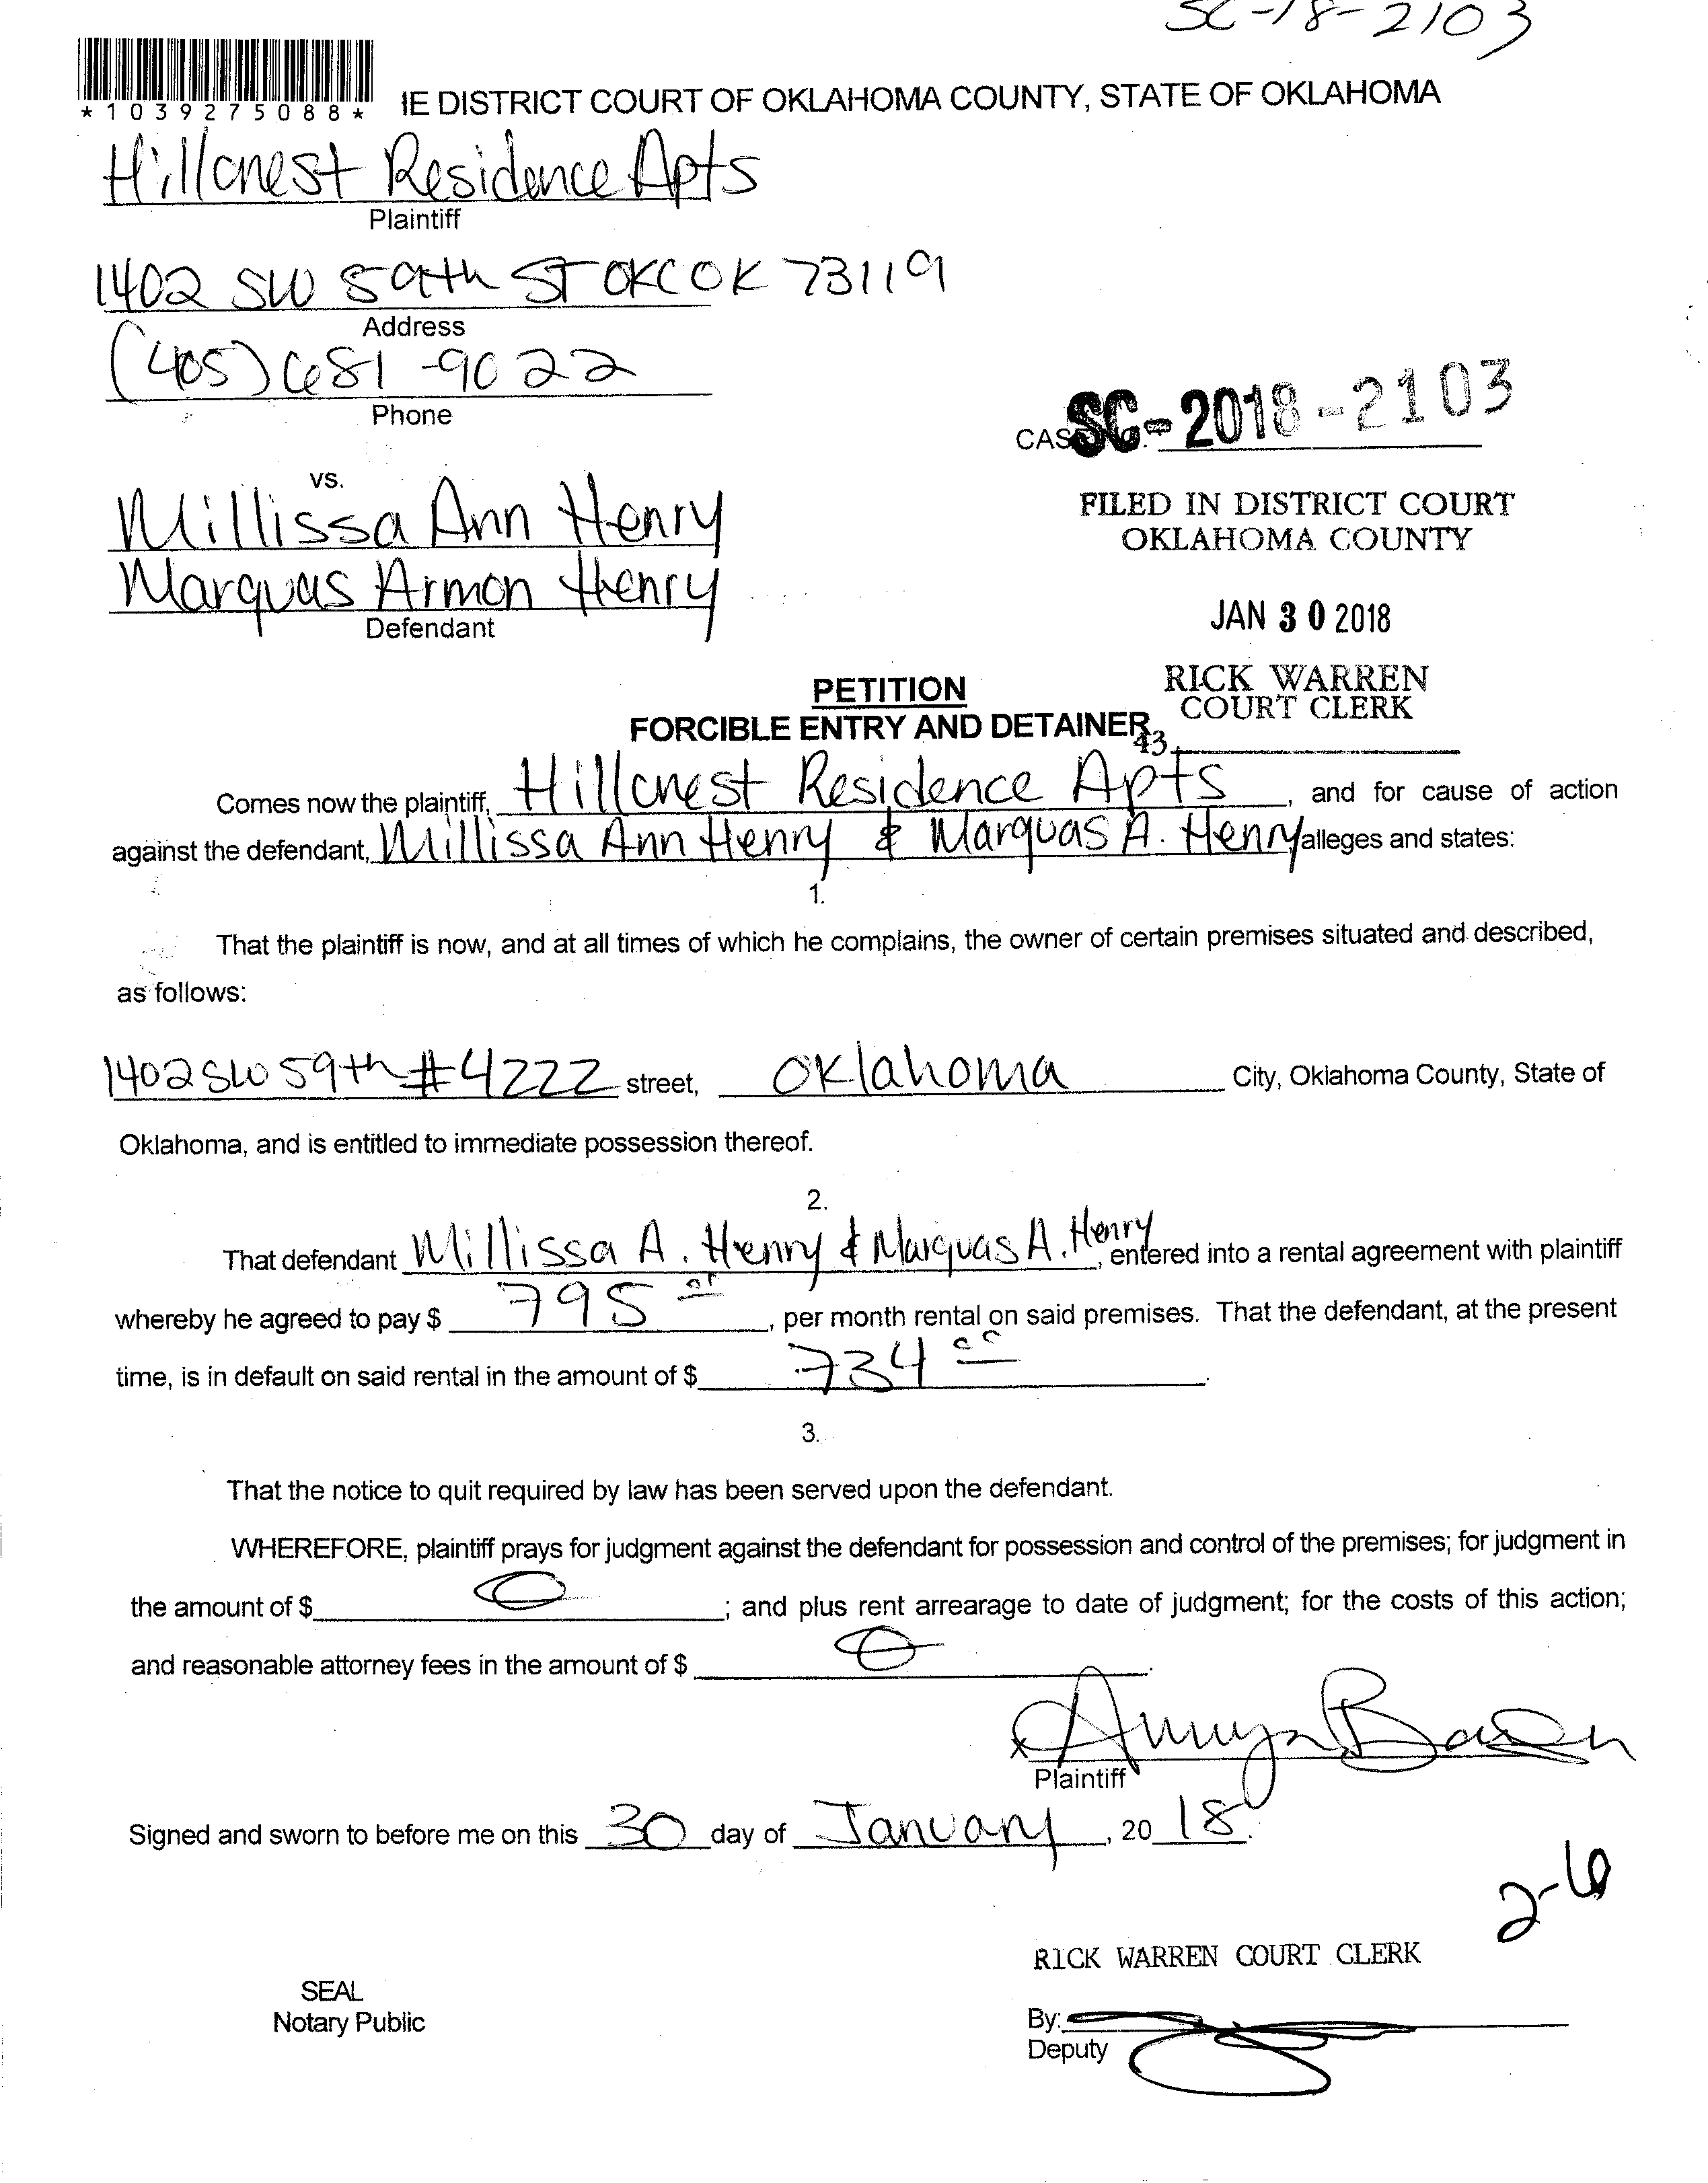 SC-18-2103
*1039275088*
IE DISTRICT COURT OF OKLAHOMA COUNTY, STATE OF OKLAHOMA
Hillcrest Residence Apts
Plaintiff
1402 SW 59th ST OKC OK 73119
Address
(405) 681-9022
Phone
CAS SC-2018-2103
vs.
Millissa Ann Henry
Marquas Armon Henry
Defendant
FILED IN DISTRICT COURT
OKLAHOMA COUNTY
JAN 30 2018
RICK WARREN
COURT CLERK
43
PETITION
FORCIBLE ENTRY AND DETAINER
Comes now the plaintiff, Hillcrest Residence Apts, and for cause of action
against the defendant, Millissa Ann Henry & Marquas A. Henry alleges and states:
1.
That the plaintiff is now, and at all times of which he complains, the owner of certain premises situated and described,
as follows:
1402 SW 59th #4222 street, Oklahoma City, Oklahoma County, State of
Oklahoma, and is entitled to immediate possession thereof.
2.
That defendant Millissa A. Henry & Marquas A. Henry, entered into a rental agreement with plaintiff
whereby he agreed to pay $ 795, per month rental on said premises. That the defendant, at the present
time, is in default on said rental in the amount of $ 734 00.
3.
That the notice to quit required by law has been served upon the defendant.
WHEREFORE, plaintiff prays for judgment against the defendant for possession and control of the premises; for judgment in
the amount of $ 0; and plus rent arrearage to date of judgment; for the costs of this action;
and reasonable attorney fees in the amount of $ 0.
x
Plaintiff
Signed and sworn to before me on this 30 day of January, 2018.
2-6
RICK WARREN COURT CLERK
SEAL
Notary Public
By:
Deputy